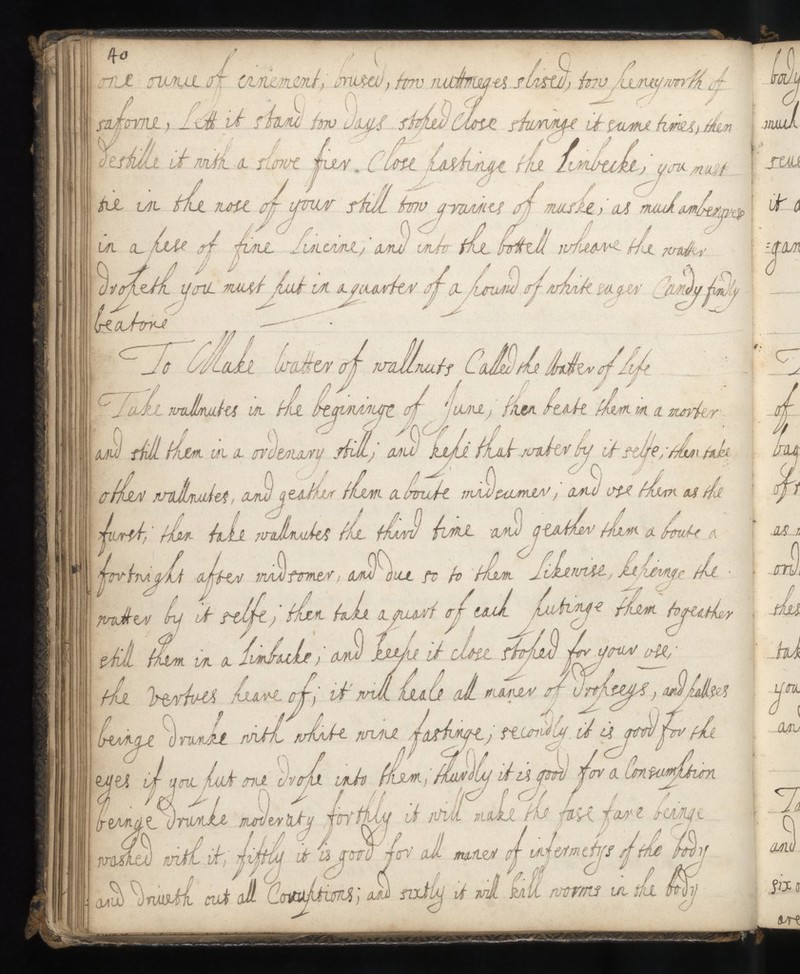 40
one ounce of cinement, brused, tow nuttmeges slised, tow peneyworth of
saforne, Lett it stand tow days stoped Close sturinge it sume times, then
destille it with a slowe fier. Close pastinge the Limbecke; you must
tie in the nose of your still tow graines of muske; as much ambergrese
in a pese of fine Lineine; and into the bottell wheare the watter
dropeth you must put in a quarter of a pound of white suger Candy finely
beatone
To Make Watter of wallnuts Called the Watter of Life
Take wallnutes in the begininge of June, then beate them in a morter
and still them in a ordenary still; and kepe that water by it selfe; then take
other wallnutes, and geather them aboute midsumer; and use them as the
furst; then take wallnutes the third time and geather them a boute a
fortnight after midsomer, and due so to them Likewise, kepeinge the
watter by it selfe; then take a quart of each putinge them togeather
still them in a Limbacke; and keepe it close stoped for your use;
the vertues heare of; it will heale all maner of dropseys, and pallses
beinge drunke with white wine fastinge; secondly it is good for the
eyes if you put one drope into them; thurdly it is good for a Consumption
beinge drunke moderaty forthly it will make the fase fare beinge
washed with it; fiftly it is good for all maner of infermetys of the body
and driveth out all Coruptions; and sixtly it will kill worms in the body
body
it
of
as
ord
tak
you
and
To
and
six
are